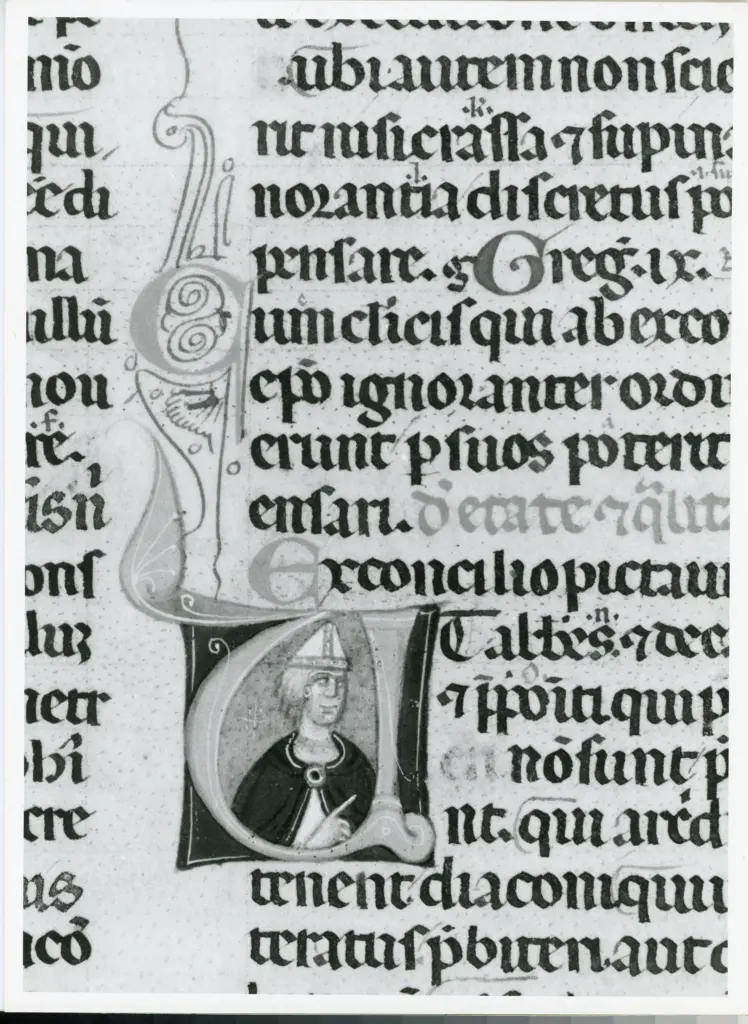 mo᷃o
qui
cedi
ma
illũ
nou
re.
isñ
ons
luꝫ
netr
obi
cre
us
acõ
ubi autem non scie
rit nisi crassa ⁊ supin
norantia discretus po
pensare. Greg̃. ix.
Cum cl̃icis qui ab exco
ep̃o ignoranter ordi
erunt p suos potent
ensari. d̃ etate ⁊ q̃lit
Ex concilio pictaui
UT abb̃es. ⁊ dec
⁊ p̃poiti qui p
nõ sunt p̃
nt. qui arcd̃
tenent diaconi qui
teratus p̃biteri. aut